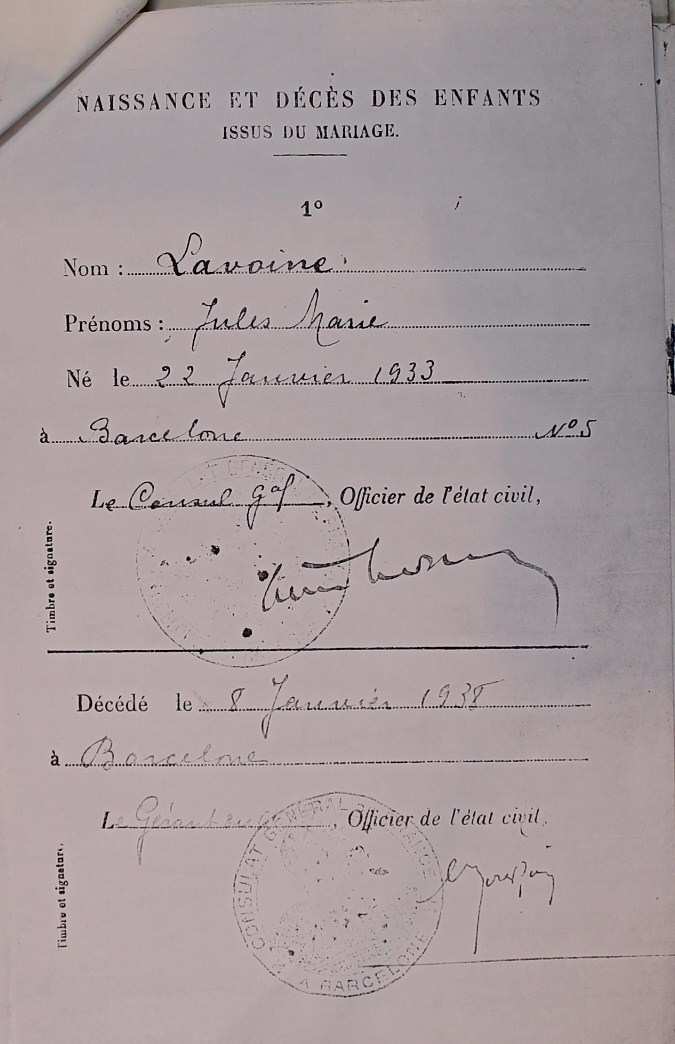 NAISSANCE ET DÉCÈS DES ENFANTS
ISSUS DU MARIAGE.
1º
Nom : Lavoine
Prénoms : Jules Marie
Né le 22 Janvier 1933
à Barcelone Nº 5
Le Consul Gal, Officier de l'état civil,
Timbre et signature.
Décédé le 8 Janvier 1938
à Barcelone
Le Gérant, Officier de l'état civil,
CONSULAT GÉNÉRAL DE FRANCE
A BARCELONE
Timbre et signature.